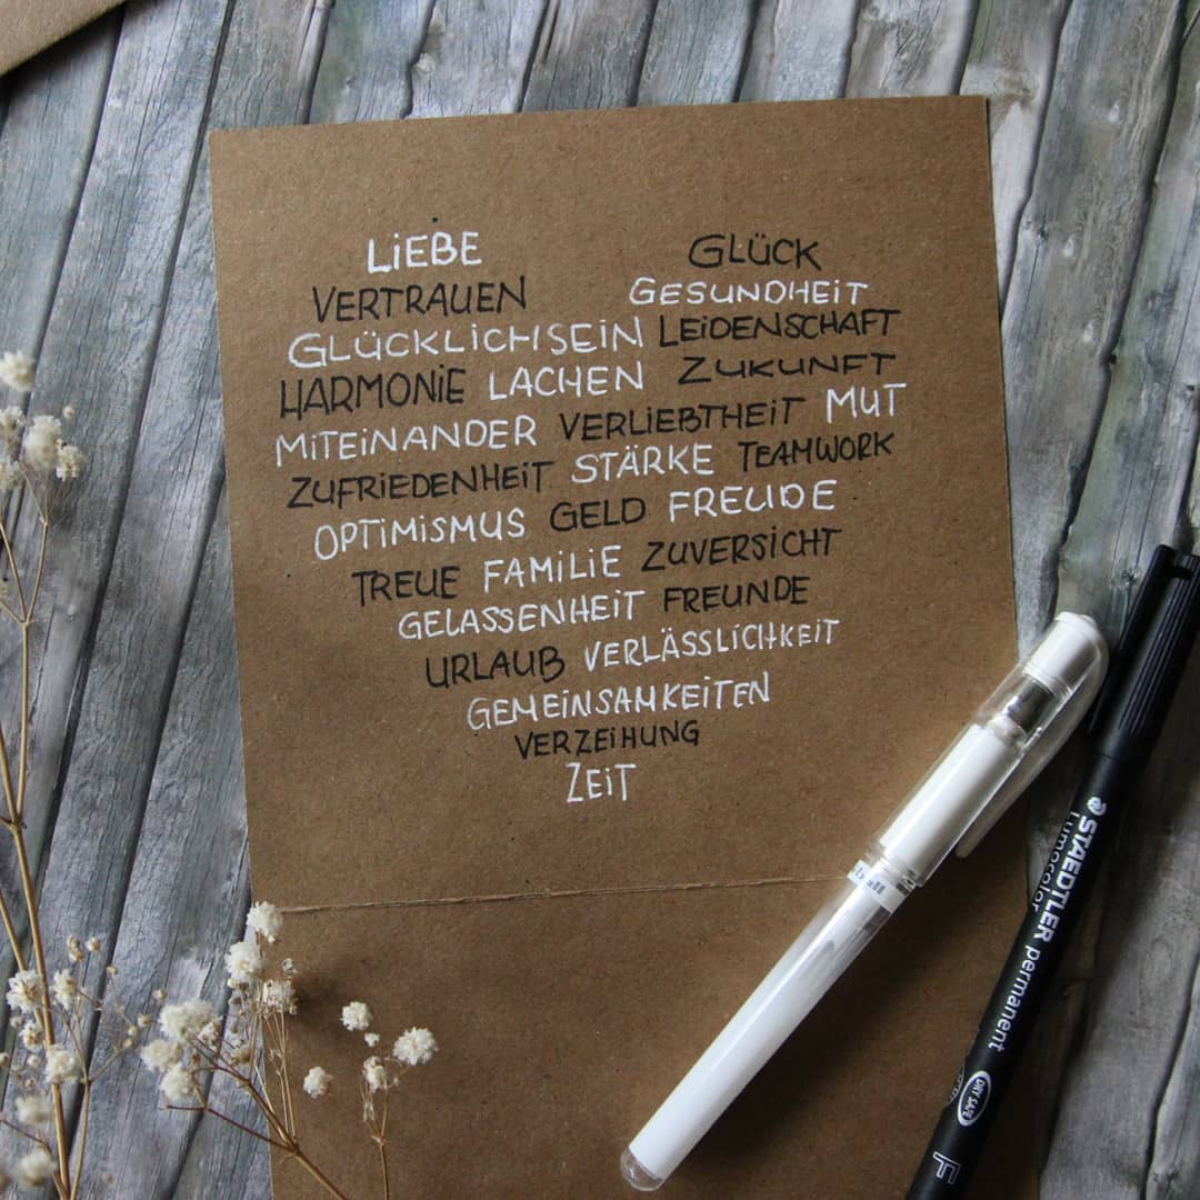 LiEBE GLÜCK
VERTRAUEN GESUNDHEiT
GLÜCKLiCHSEiN LEiDENSCHAFT
HARMONiE LACHEN ZUKUNFT
MiTEiNANDER VERLiEBTHEiT MUT
ZUFRiEDENHEiT STÄRKE TEAMWORK
OPTiMiSMUS GELD FREUDE
TREUE FAMiLiE ZUVERSiCHT
GELASSENHEiT FREUNDE
URLAUB VERLÄSSLiCHKEiT
GEMEiNSAMKEiTEN
VERZEiHUNG
ZEiT
STAEDTLER permanent
Lumocolor
DRY SAFE
F